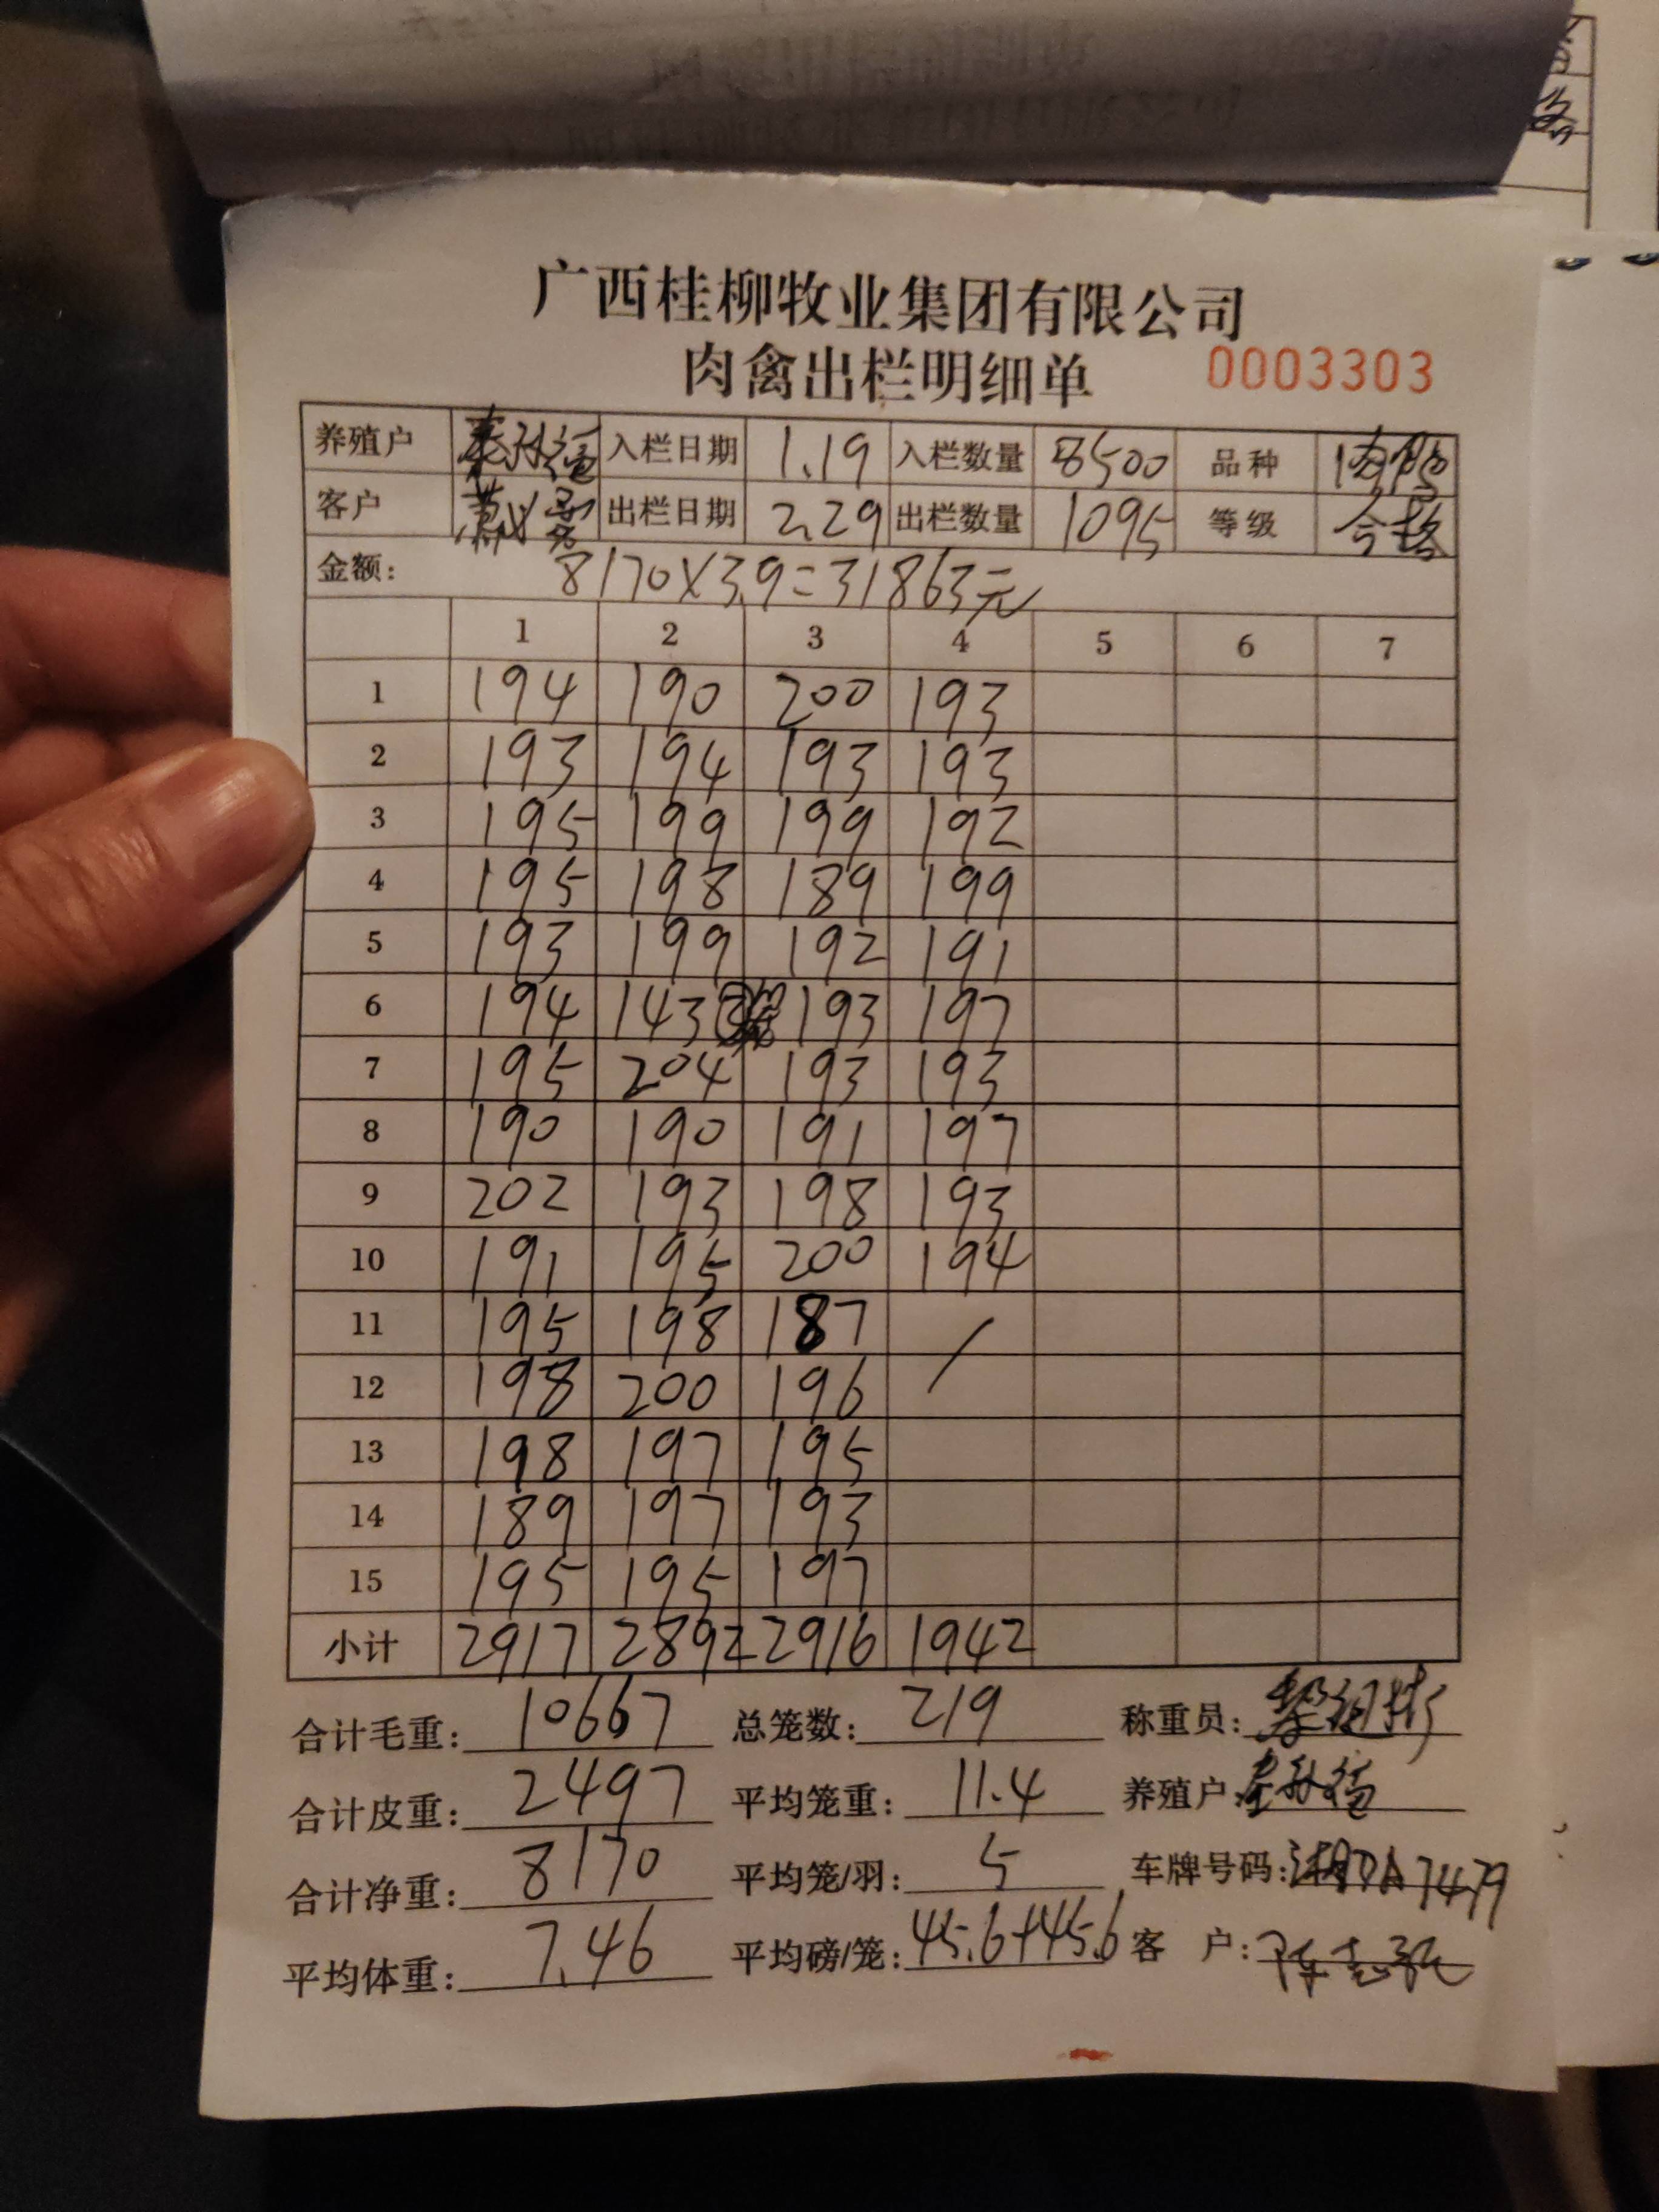 广西桂柳牧业集团有限公司
肉禽出栏明细单 0003303
养殖户 入栏日期 1.19 入栏数量 8500 品种 肉鸭
客户 出栏日期 2.29 出栏数量 1095 等级 合格
金额: 8170×3.9=31863元
1 2 3 4 5 6 7
1 194 190 200 193
2 193 194 193 193
3 195 199 199 192
4 195 198 189 199
5 193 199 192 191
6 194 143 193 197
7 195 204 193 193
8 190 190 191 197
9 202 193 198 193
10 191 195 200 194
11 195 198 187 /
12 198 200 196
13 198 197 195
14 189 197 193
15 195 195 197
小计 2917 2892 2916 1942
合计毛重: 10667 总笼数: 219 称重员:
合计皮重: 2497 平均笼重: 11.4 养殖户:
合计净重: 8170 平均笼/羽: 5 车牌号码: 7479
平均体重: 7.46 平均磅/笼: 45.6+45.6 客 户: